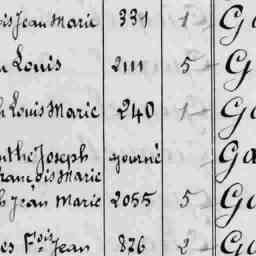 is Jean Marie 331 1 G
Louis 2111 5 G
h Louis Marie 240 1 G
nthe Joseph journé Ga
rançois Marie
h Jean Marie 2055 5 G
es Fois Jean 876 2 G